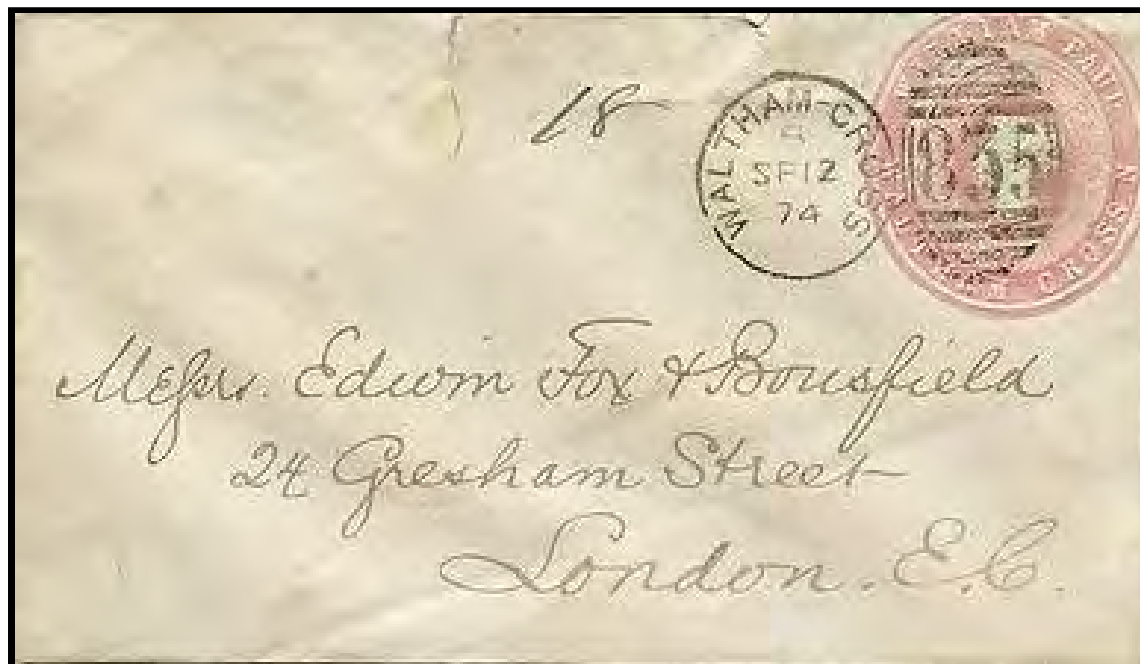 18
WALTHAM-CROSS
SP 12
74
Messrs. Edwin Fox & Bousfield
24 Gresham Street
London. E.C.